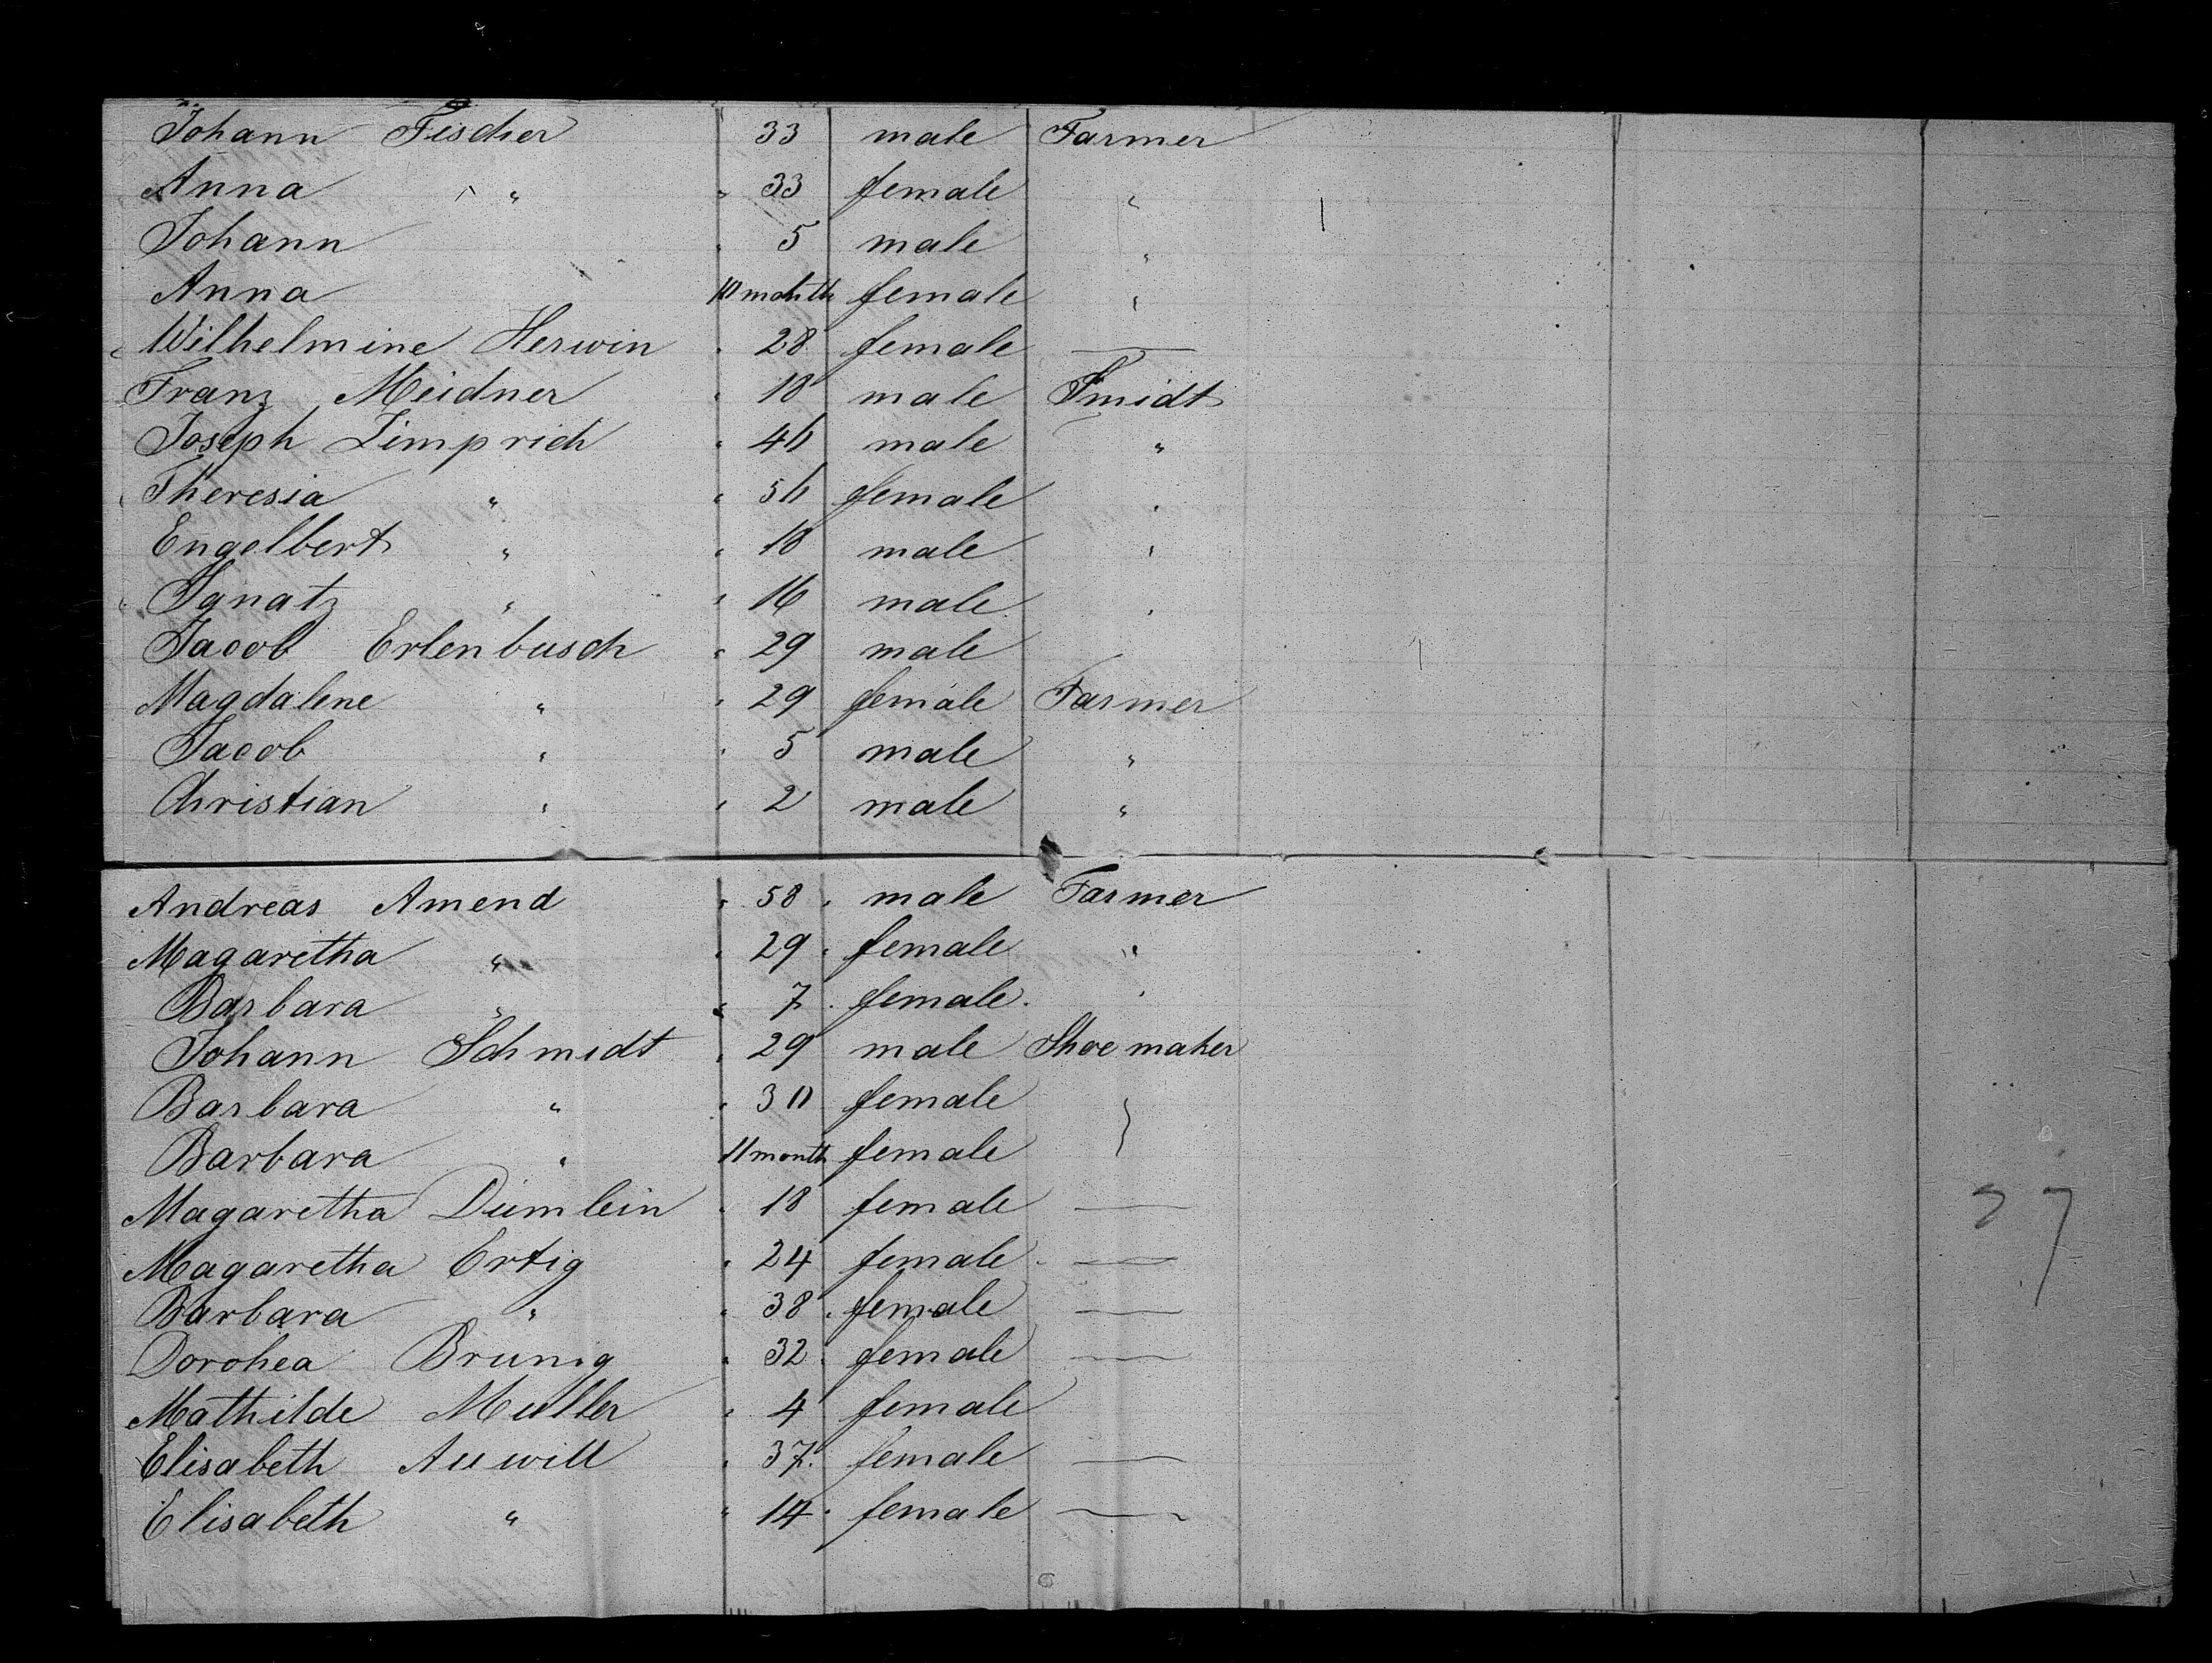 Johann Fischer 33 male Farmer
Anna " " 33 female "
Johann " 5 male "
Anna 10 month female "
" Wilhelmine Herwin " 28 female —
Franz Meidner " 18 male Smidt
Joseph Limprich " 46 male "
" Theresia " " 56 female "
Engelbert " " 18 male "
" Ignatz " " 16 male "
Jacob Erlenbusch " 29 male
Magdalene " " 29 female Farmer
Jacob " " 5 male "
Christian " " 2 male "
Andreas Amend " 58 " male Farmer
Magaretha " " 29 " female "
Barbara " " 7 " female "
Johann Schmidt " 29 male Shoe maker
Barbara " " 30 female }
Barbara " 11 month female
Magaretha Dümlein " 18 female —
Magaretha Ertig " 24 female —
Barbara " " 38 " female —
Dorohea Brunig " 32 " female —
Mathilde Muller " 4 female
Elisabeth Auwill " 37 female —
Elisabeth " " 14 " female —
27